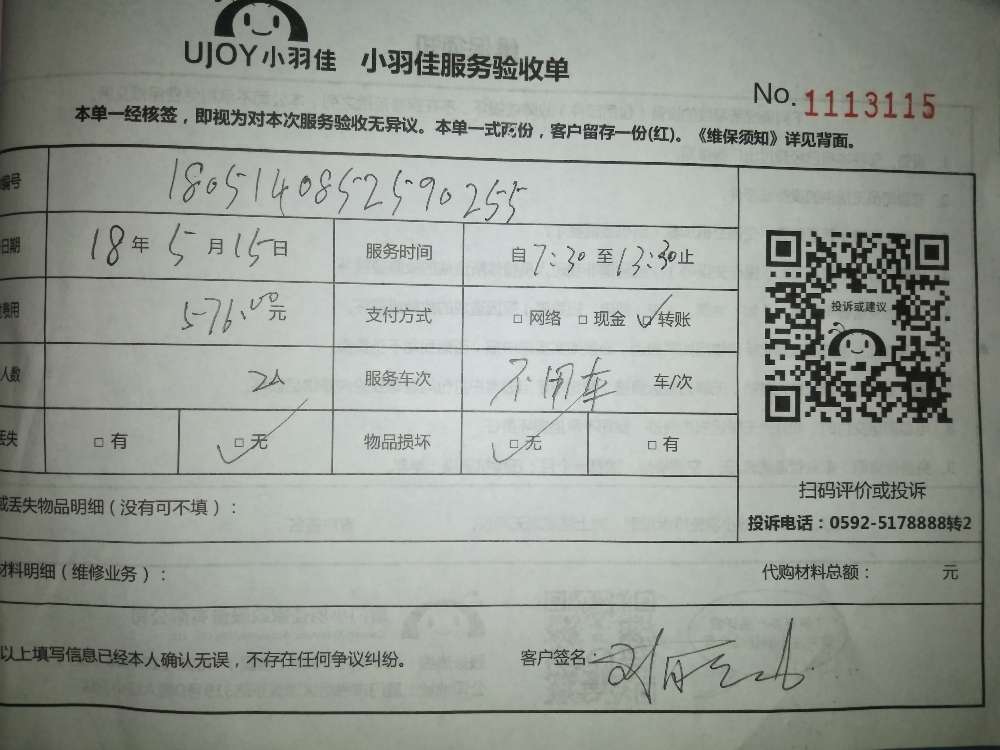 UJOY小羽佳 小羽佳服务验收单
No. 1113115
本单一经核签，即视为对本次服务验收无异议。本单一式两份，客户留存一份(红)。《维保须知》详见背面。
编号 1805140852590255
日期 18年 5月 15日 服务时间 自7:30至13:30止
费用 576.00元 支付方式 □ 网络 □ 现金 □ 转账
人数 2人 服务车次 不用车 车/次
丢失 □ 有 □ 无 物品损坏 □ 无 □ 有
投诉或建议
扫码评价或投诉
投诉电话：0592-5178888转2
或丢失物品明细（没有可不填）：
材料明细（维修业务）： 代购材料总额： 元
以上填写信息已经本人确认无误，不存在任何争议纠纷。 客户签名：